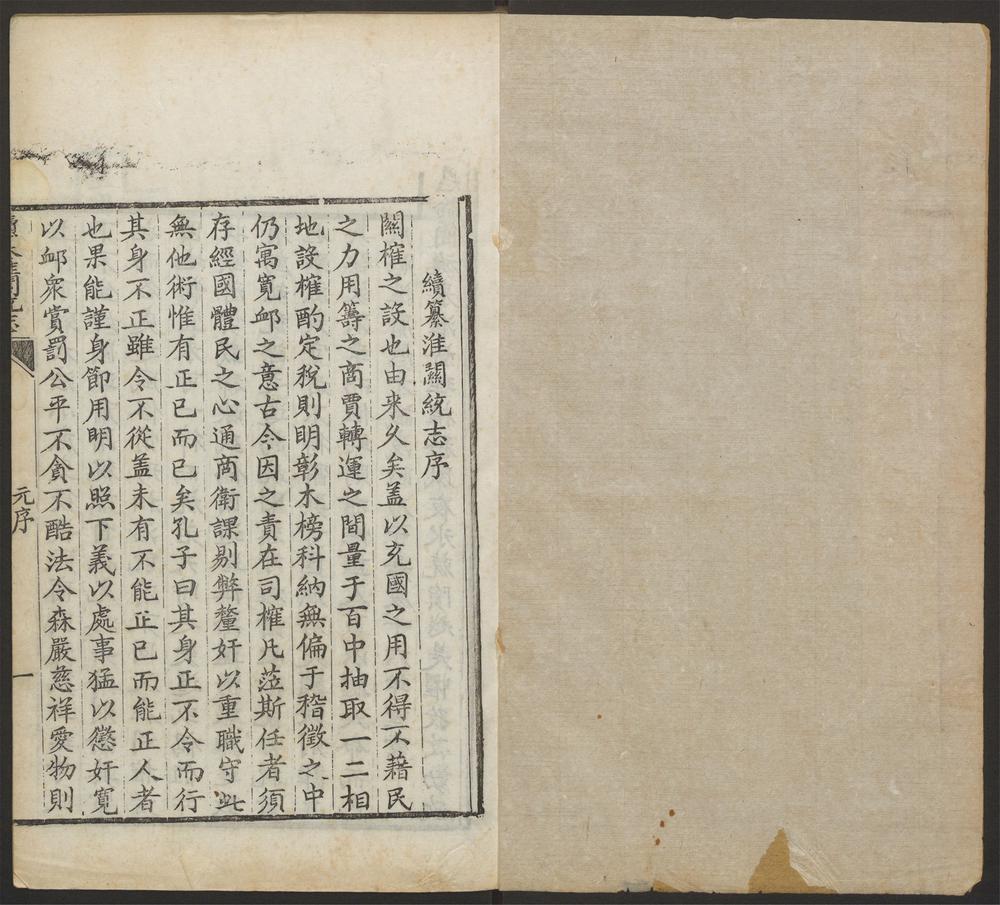 續纂淮關統志序
關榷之設也由来久矣盖以充國之用不得不藉民
之力用籌之商賈轉運之間量于百中抽取一二相
地設榷酌定稅則明彰木榜科納無偏于稽徵之中
仍寓寬邺之意古今因之責在司榷凡蒞斯任者須
存經國體民之心通商衛課剔弊釐奸以重職守此
無他術惟有正已而已矣孔子曰其身正不令而行
其身不正雖令不從盖未有不能正已而能正人者
也果能謹身節用明以照下義以處事猛以懲奸寬
以邺衆賞罰公平不貪不酷法令森嚴慈祥愛物則
元序
一